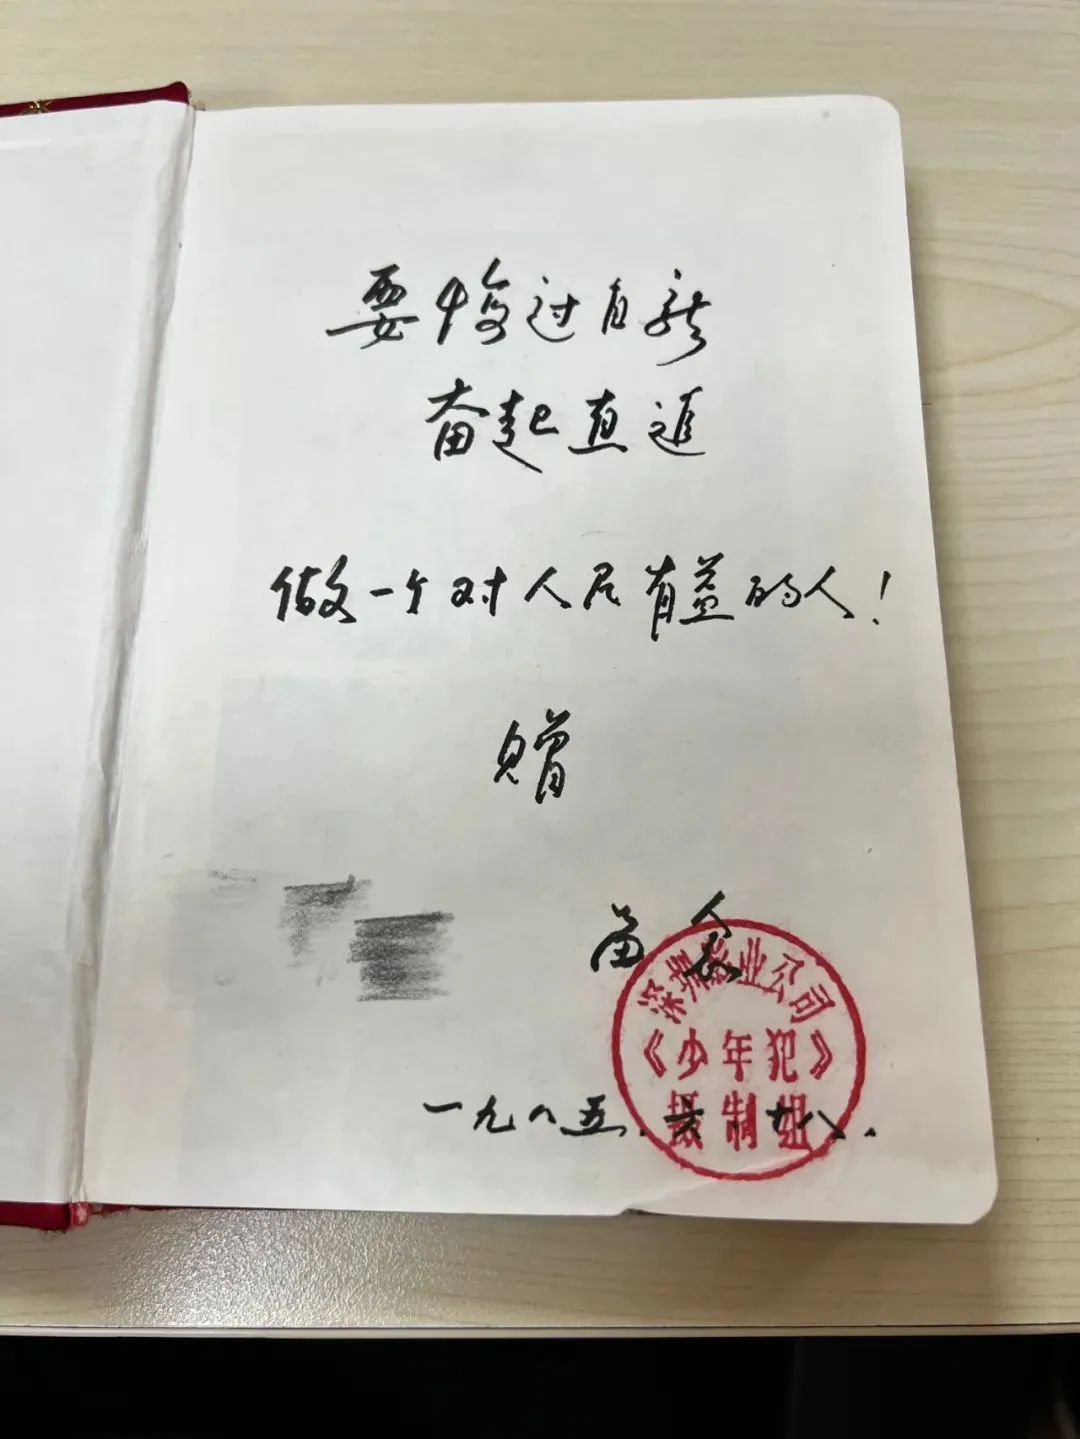 要悔过自新
奋起直追
做一个对人民有益的人!
赠
苗众
深圳影业公司
《少年犯》
摄制组
一九八五.六.十八.